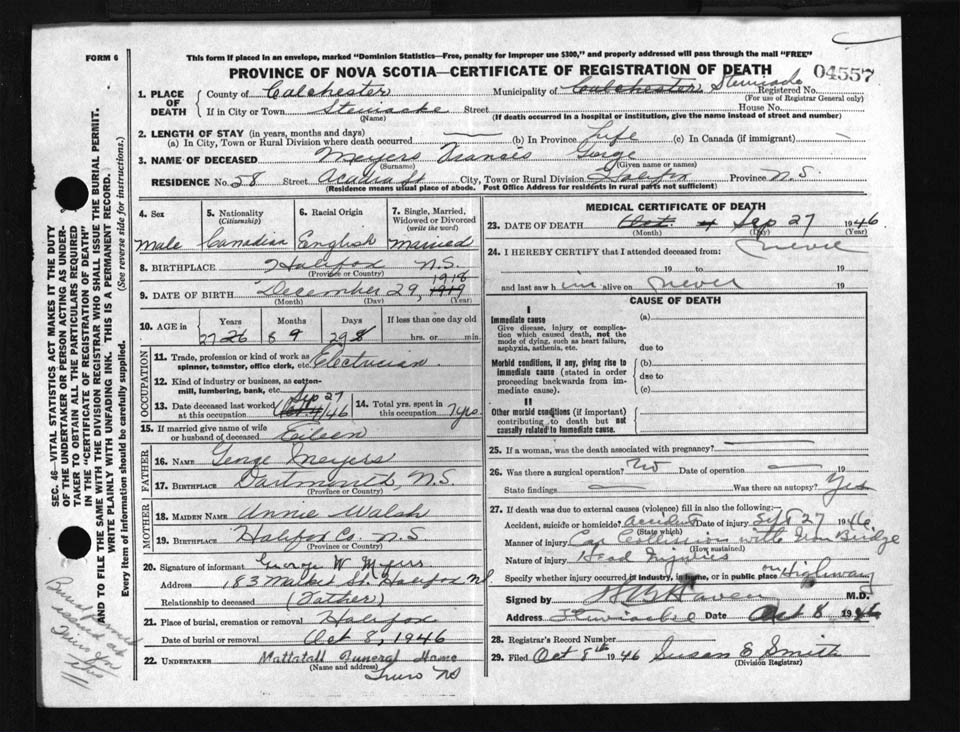 FORM 6
This form if placed in an envelope, marked "Dominion Statistics—Free, penalty for improper use $300," and properly addressed will pass through the mail "FREE"
PROVINCE OF NOVA SCOTIA—CERTIFICATE OF REGISTRATION OF DEATH 04557
1. PLACE OF DEATH
County of Colchester Municipality of Colchester Stewiacke Registered No.
(For use of Registrar General only)
If in City or Town Stewiacke Street House No.
(Name) (If death occurred in a hospital or institution, give the name instead of street and number)
2. LENGTH OF STAY (in years, months and days)
(a) In City, Town or Rural Division where death occurred — (b) In Province Life (c) In Canada (if immigrant) —
3. NAME OF DECEASED Meyers Francis George
(Surname) (Given name or names)
RESIDENCE No. 58 Street Acadia St City, Town or Rural Division Halifax Province N.S.
(Residence means usual place of abode. Post Office Address for residents in rural parts not sufficient)
4. Sex
Male
5. Nationality
(Citizenship)
Canadian
6. Racial Origin
English
7. Single, Married, Widowed or Divorced
(write the word)
Married
8. BIRTHPLACE Halifax N.S.
(Province or Country)
1918
9. DATE OF BIRTH December 29, 1919
(Month) (Day) (Year)
10. AGE in
Years Months Days If less than one day old
27 26 8 9 29 8 hrs. or min.
OCCUPATION
11. Trade, profession or kind of work as spinner, teamster, office clerk, etc. Electrician
12. Kind of industry or business, as cotton-mill, lumbering, bank, etc.
13. Date deceased last worked at this occupation Sep 27 Oct 4/46
14. Total yrs. spent in this occupation 7 yrs.
15. If married give name of wife or husband of deceased Eileen
FATHER
16. NAME George Meyers
17. BIRTHPLACE Dartmouth, N.S.
(Province or Country)
MOTHER
18. MAIDEN NAME Annie Walsh
19. BIRTHPLACE Halifax Co. N.S.
(Province or Country)
20. Signature of informant George W Meyers
Address 183 Market St. Halifax NS
Relationship to deceased (Father)
21. Place of burial, cremation or removal Halifax
Date of burial or removal Oct 8, 1946
22. UNDERTAKER Mattatall Funeral Home
(Name and address)
Truro NS
MEDICAL CERTIFICATE OF DEATH
23. DATE OF DEATH Oct. 4 Sep 27 1946
(Month) (Day) (Year)
24. I HEREBY CERTIFY that I attended deceased from: never
19 to 19
and last saw him alive on never 19
CAUSE OF DEATH
I
Immediate cause
Give disease, injury or complication which caused death, not the mode of dying, such as heart failure, asphyxia, asthenia, etc.
(a)
due to
Morbid conditions, if any, giving rise to immediate cause (stated in order proceeding backwards from immediate cause).
(b)
due to
(c)
II
Other morbid conditions (if important) contributing to death but not causally related to immediate cause.
25. If a woman, was the death associated with pregnancy? —
26. Was there a surgical operation? No Date of operation — 19
State findings — Was there an autopsy? Yes
27. If death was due to external causes (violence) fill in also the following:
Accident, suicide or homicide? Accident Date of injury Sept 27 1946
(State which)
Manner of injury Car Collission with Iron Bridge
(How sustained)
Nature of injury Head Injuries
Specify whether injury occurred in industry, in home, or in public place on Highway
Signed by M.D.
Address Date Oct 8 1946
28. Registrar's Record Number
29. Filed Oct 8th 1946 Susan E Smith
(Division Registrar)
SEC. 46—VITAL STATISTICS ACT MAKES IT THE DUTY
OF THE UNDERTAKER OR PERSON ACTING AS UNDERTAKER TO OBTAIN ALL THE PARTICULARS REQUIRED
IN THE "CERTIFICATE OF REGISTRATION OF DEATH"
AND TO FILE THE SAME WITH THE DIVISION REGISTRAR WHO SHALL ISSUE THE BURIAL PERMIT.
WRITE PLAINLY WITH UNFADING INK. THIS IS A PERMANENT RECORD.
Every item of information should be carefully supplied. (See reverse side for instructions.)